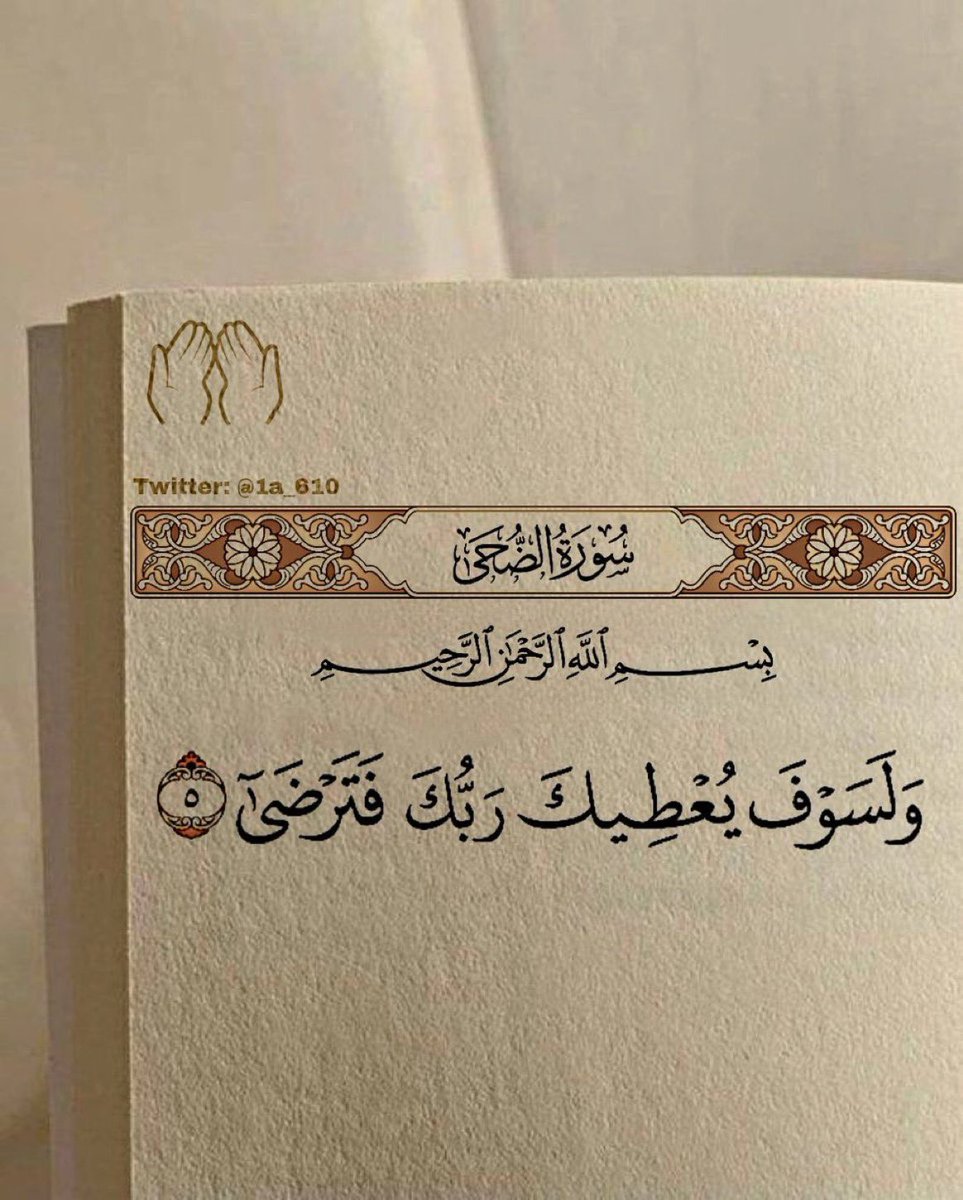 Twitter: @1a_610
سُورَةُ الضُّحَى
بِسْمِ ٱللَّهِ ٱلرَّحْمَٰنِ ٱلرَّحِيمِ
وَلَسَوْفَ يُعْطِيكَ رَبُّكَ فَتَرْضَىٰٓ ٥